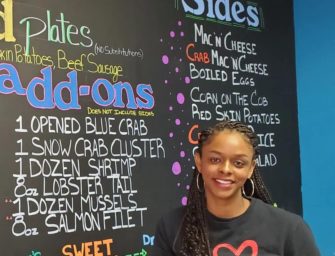 Plates
(No Substitutions)
skin Potatoes, Beef Sausage
add-ons
DOES NOT INCLUDE SIDES
1 OPENED BLUE CRAB
1 SNOW CRAB CLUSTER
1 DOZEN SHRIMP
8oz LOBSTER TAIL
1 DOZEN MUSSELS
8oz SALMON FILET
SWEET
Dr
Sides
MAC 'N' CHEESE
CRAB MAC 'N' CHEESE
BOILED EGGS
CORN ON THE COB
RED SKIN POTATOES